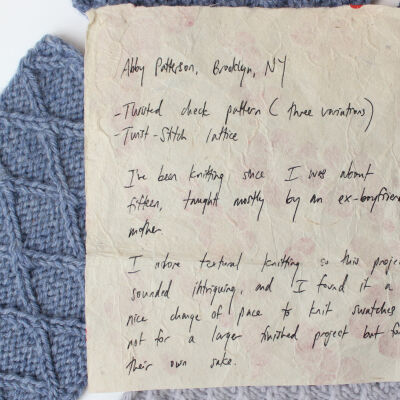 Abby Patterson, Brooklyn, NY
-Twisted check pattern (three variations)
-Twist-Stitch lattice
I've been knitting since I was about
fifteen, taught mostly by an ex-boyfriend
mother.
I adore textural knitting so this projec
sounded intriguing, and I found it a
nice change of pace to knit swatches
not for a larger finished project but fo
their own sake.